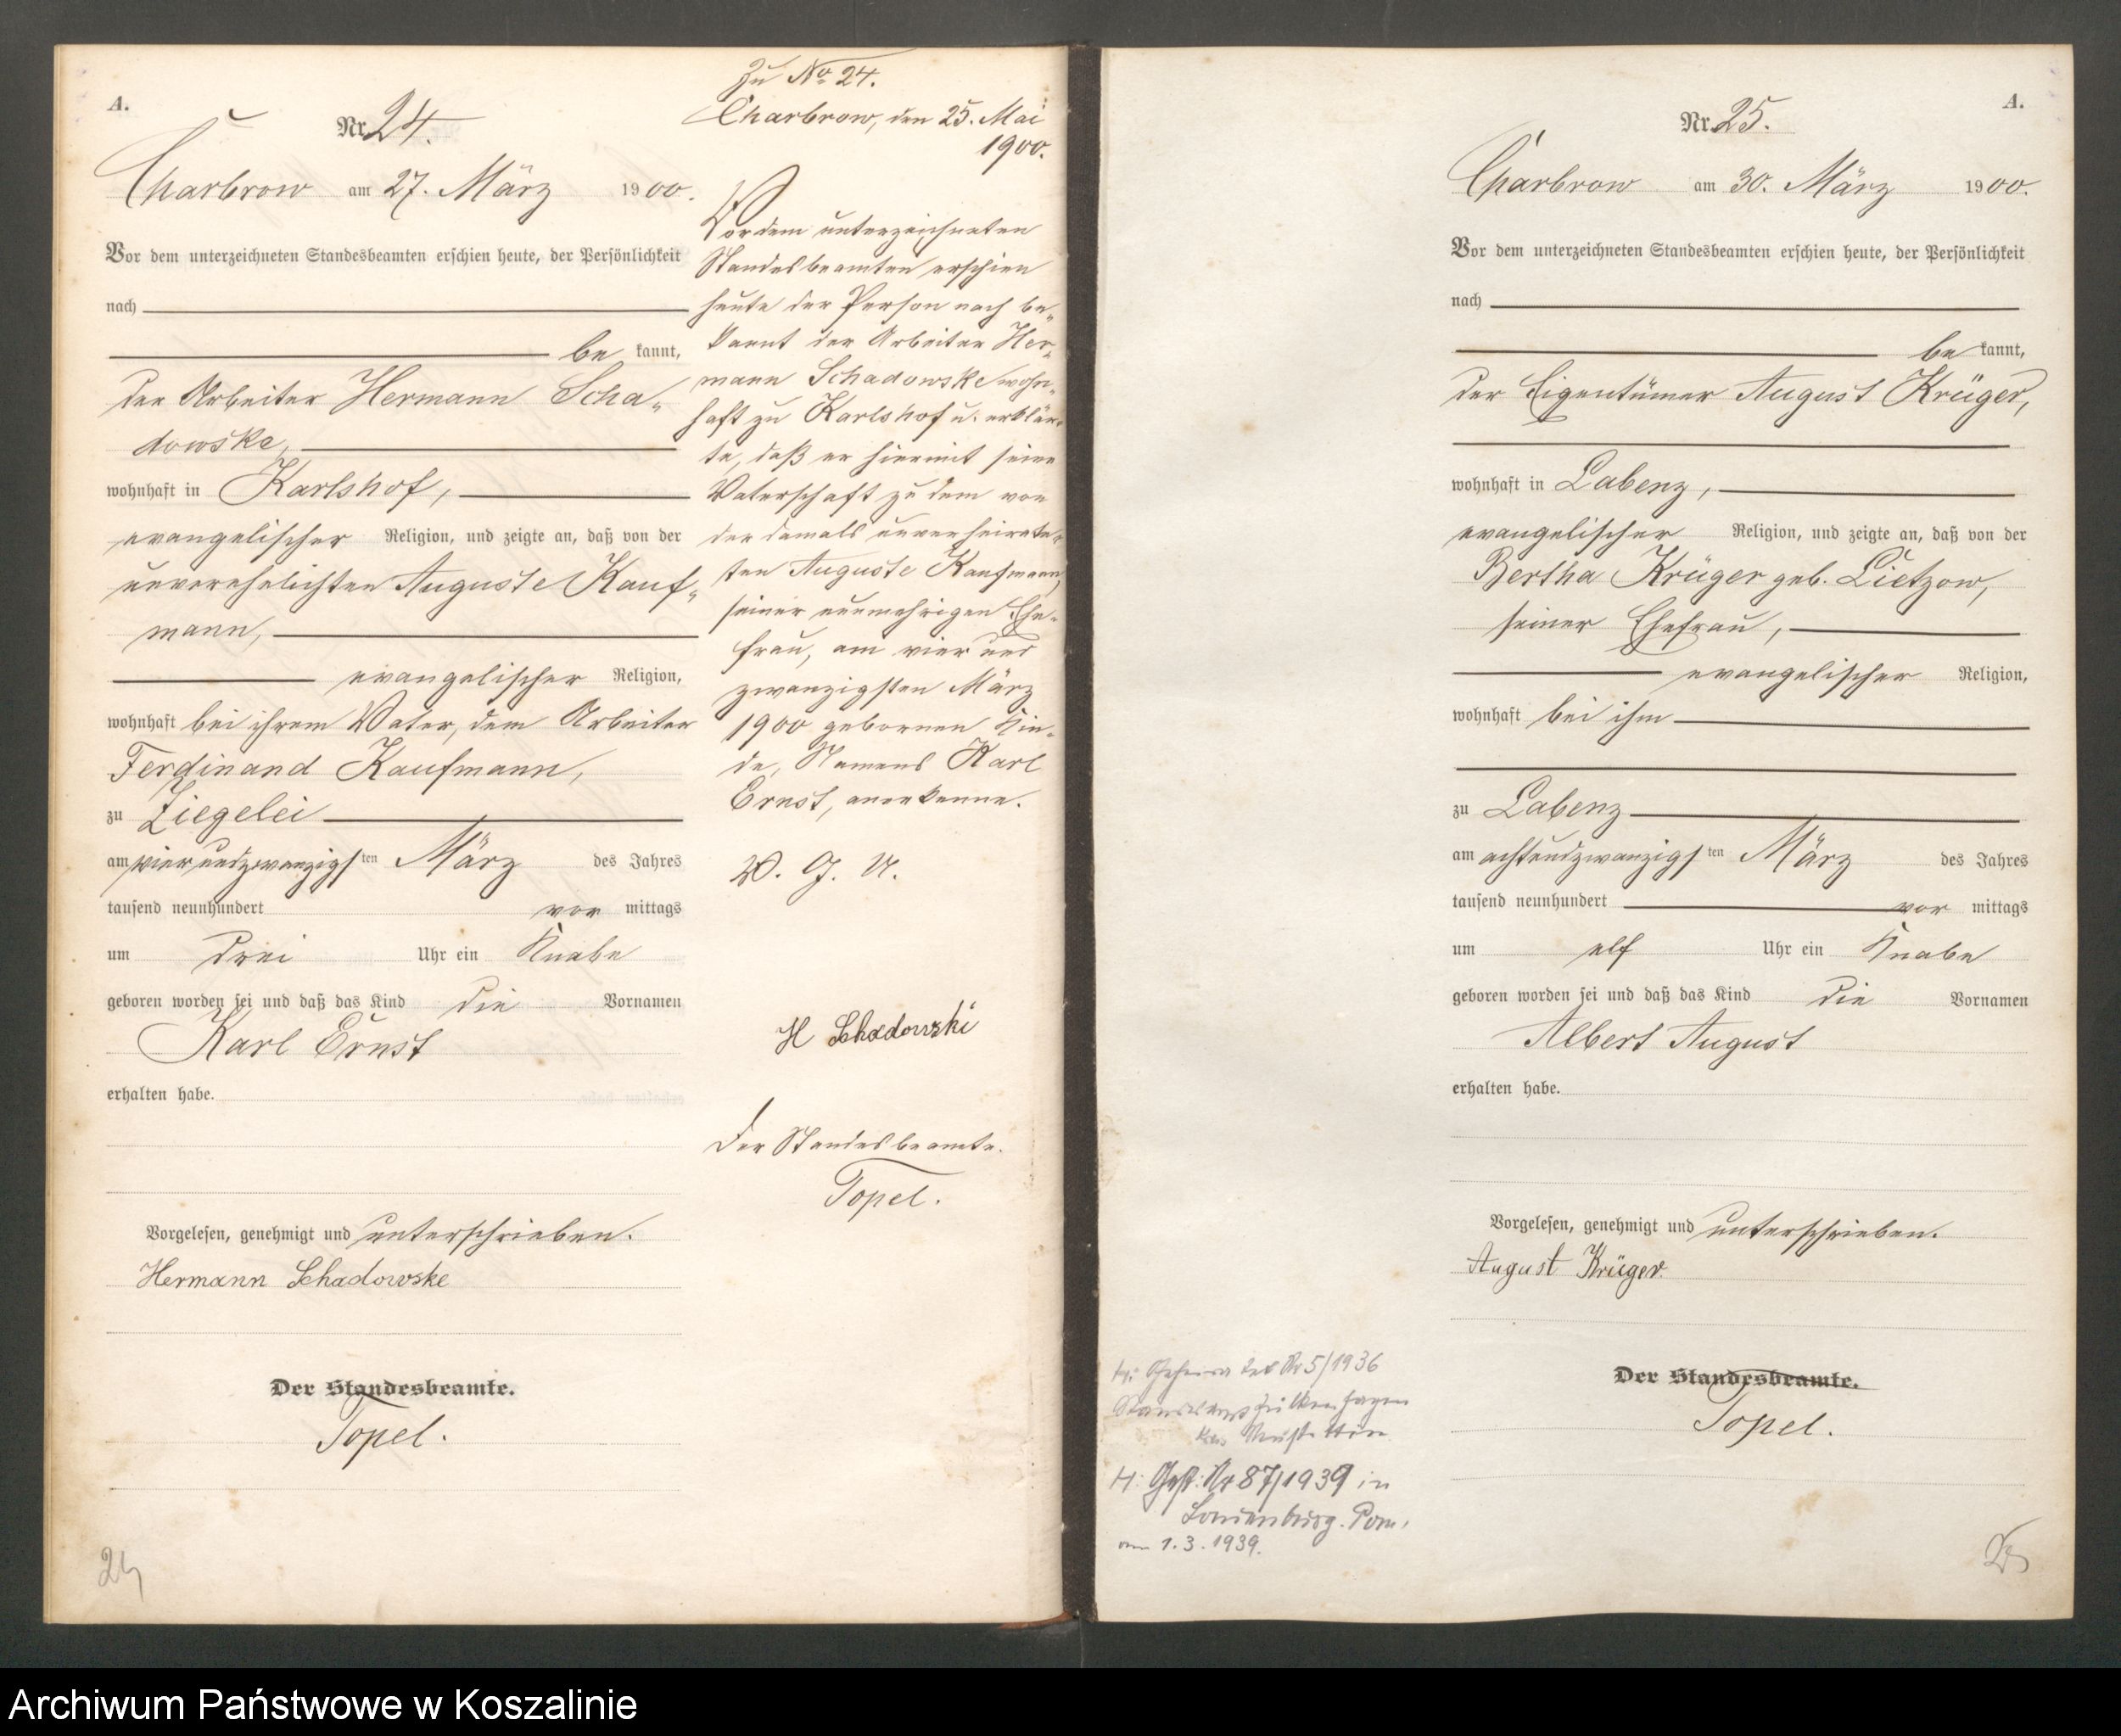 A.
Nr. 24.
Charbrow am 27. März 1900.
Vor dem unterzeichneten Standesbeamten erschien heute, der Persönlichkeit
nach
be kannt,
der Arbeiter Hermann Scha-
dowske,
wohnhaft in Karlshof,
evangelischer Religion, und zeigte an, daß von der
unverehelichten Auguste Kauf-
mann,
evangelischer Religion,
wohnhaft bei ihrem Vater, dem Arbeiter
Ferdinand Kaufmann,
zu Ziegelei
am vierundzwanzigsten März des Jahres
tausend neunhundert vor mittags
um drei Uhr ein Knabe
geboren worden sei und daß das Kind die Vornamen
Karl Ernst
erhalten habe.
Vorgelesen, genehmigt und unterschrieben.
Hermann Schadowske
Der Standesbeamte.
Topel.
24
Zu No 24.
Charbrow, den 25. Mai
1900.
Vor dem unterzeichneten
Standesbeamten erschien
heute der Person nach be-
kannt der Arbeiter Her-
mann Schadowske wohn-
haft zu Karlshof u. erklär-
te, daß er hiermit seine
Vaterschaft zu dem von
der damals unverheirate-
ten Auguste Kaufmann,
seiner nunmehrigen Ehe-
frau, am vier und
zwanzigsten März
1900 gebornen Kin-
de, Namens Karl
Ernst, anerkenne.
V. G. U.
H Schadowski
Der Standesbeamte.
Topel.
A.
Nr. 25.
Charbrow am 30. März 1900.
Vor dem unterzeichneten Standesbeamten erschien heute, der Persönlichkeit
nach
be kannt,
der Eigentümer August Krüger,
wohnhaft in Labenz,
evangelischer Religion, und zeigte an, daß von der
Bertha Krüger geb. Lietzow,
seiner Ehefrau,
evangelischer Religion,
wohnhaft bei ihm
zu Labenz
am achtundzwanzigsten März des Jahres
tausend neunhundert vor mittags
um elf Uhr ein Knabe
geboren worden sei und daß das Kind die Vornamen
Albert August
erhalten habe.
Vorgelesen, genehmigt und unterschrieben.
August Krüger.
Der Standesbeamte.
Topel.
Nr 5/1936
Neustettin
H: Gest: Nr 87/1939 in
Lauenburg. Pom.
am 1.3.1939.
25
Archiwum Państwowe w Koszalinie